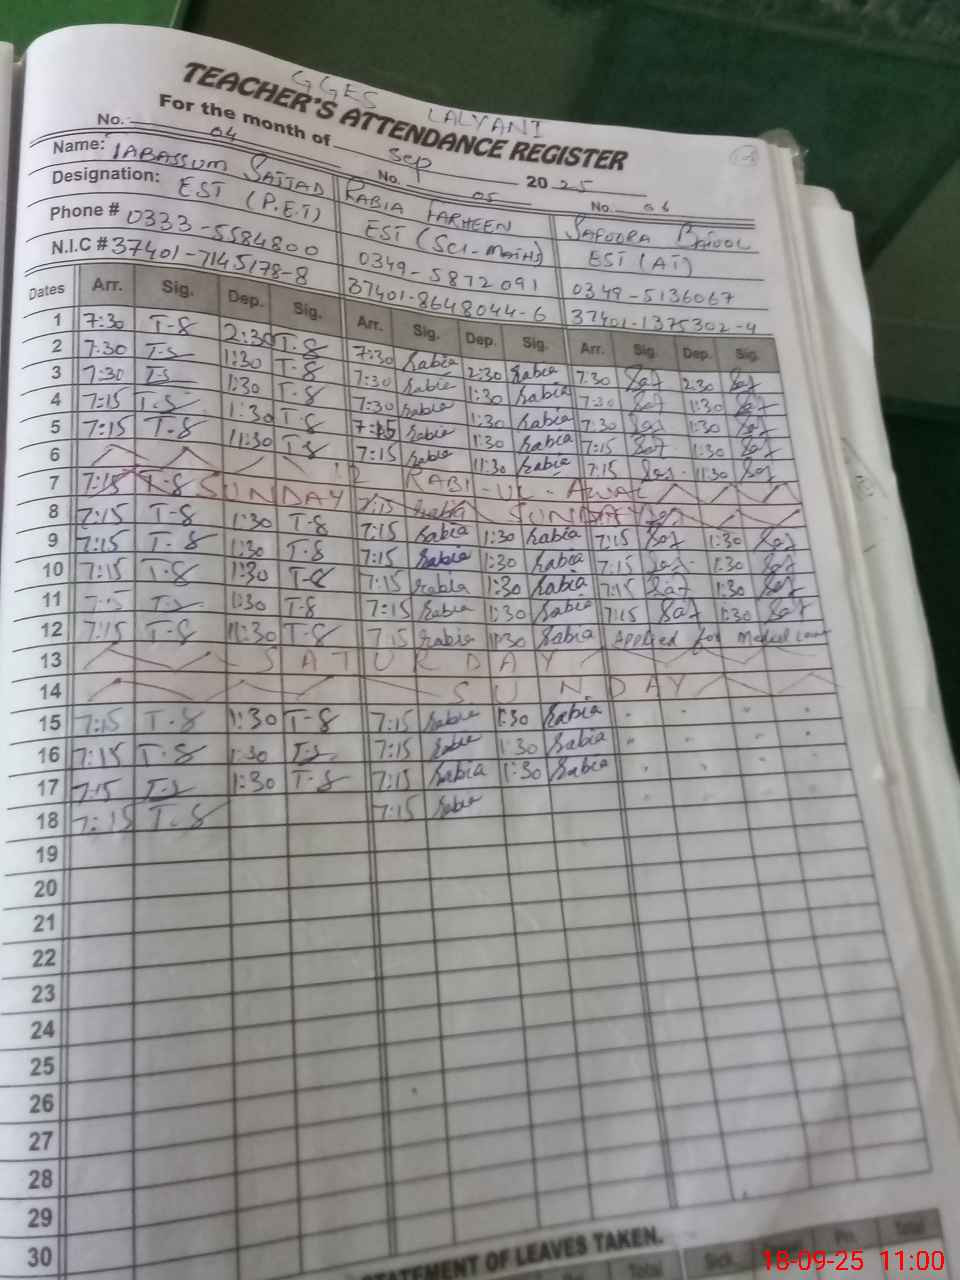 GGES LALYANI
TEACHER'S ATTENDANCE REGISTER
For the month of Sep 2025
No. 04 No. 05 No. 06
Name: TABASSUM SAJJAD RABIA FARHEEN SAFOORA BATOOL
Designation: EST (P.E.T) EST (Sci-Maths) EST (AT)
Phone # 0333-5584800 0349-5872091 0349-5136067
N.I.C # 37401-7145178-8 37401-8648044-6 37401-1375302-4
Dates Arr. Sig. Dep. Sig. Arr. Sig. Dep. Sig. Arr. Sig. Dep. Sig.
1 7:30 T-S 2:30 T-S 7:30 Rabia 2:30 Rabia 7:30 Saf 2:30 Saf
2 7:30 T-S 1:30 T-S 7:30 Rabia 1:30 Rabia 7:30 Saf 1:30 Saf
3 7:30 T-S 1:30 T-S 7:30 Rabia 1:30 Rabia 7:30 Saf 1:30 Saf
4 7:15 T-S 1:30 T-S 7:15 Rabia 1:30 Rabia 7:15 Saf 1:30 Saf
5 7:15 T-S 11:30 T-S 7:15 Rabia 11:30 Rabia 7:15 Saf 11:30 Saf
6 12 RABI-UL-AWAL
7 7:15 T-S SUNDAY 7:15 Rabia SUNDAY Saf
8 7:15 T-S 1:30 T-S 7:15 Rabia 1:30 Rabia 7:15 Saf 1:30 Saf
9 7:15 T-S 1:30 T-S 7:15 Rabia 1:30 Rabia 7:15 Saf 1:30 Saf
10 7:15 T-S 1:30 T-S 7:15 Rabia 1:30 Rabia 7:15 Saf 1:30 Saf
11 7:15 T-S 1:30 T-S 7:15 Rabia 1:30 Rabia 7:15 Saf 1:30 Saf
12 7:15 T-S 11:30 T-S 7:15 Rabia 11:30 Rabia Applied for
13 SATURDAY
14 SUNDAY
15 7:15 T-S 1:30 T-S 7:15 Rabia 1:30 Rabia
16 7:15 T-S 1:30 T-S 7:15 Rabia 1:30 Rabia
17 7:15 T-S 1:30 T-S 7:15 Rabia 1:30 Rabia
18 7:15 T-S 7:15 Rabia
19
20
21
22
23
24
25
26
27
28
29
30
STATEMENT OF LEAVES TAKEN.
Total Sick. Pri. Total
18-09-25 11:00